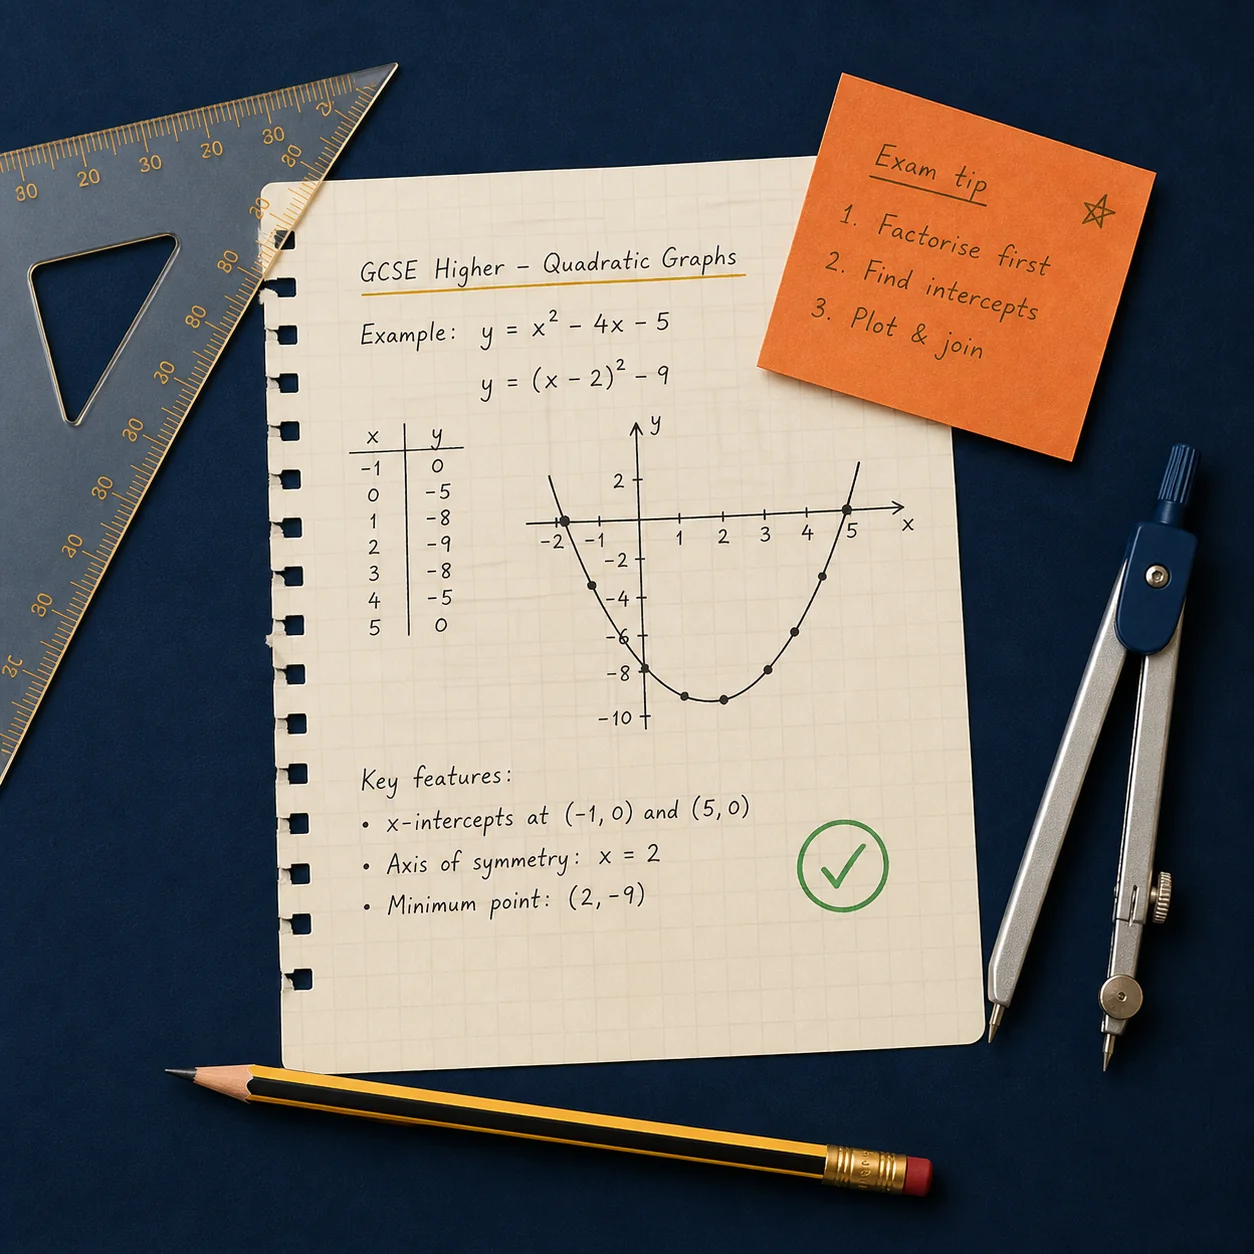 GCSE Higher – Quadratic Graphs
Example: y = x² – 4x – 5
y = (x – 2)² – 9
x y
-1 0
0 -5
1 -8
2 -9
3 -8
4 -5
5 0
y
2
-2 -1 1 2 3 4 5 x
-2
-4
-6
-8
-10
Key features:
• x-intercepts at (-1, 0) and (5, 0)
• Axis of symmetry: x = 2
• Minimum point: (2, -9)
Exam tip
1. Factorise first
2. Find intercepts
3. Plot & join
30 20 30 20 30
20 80 80 30 30 30 20 30